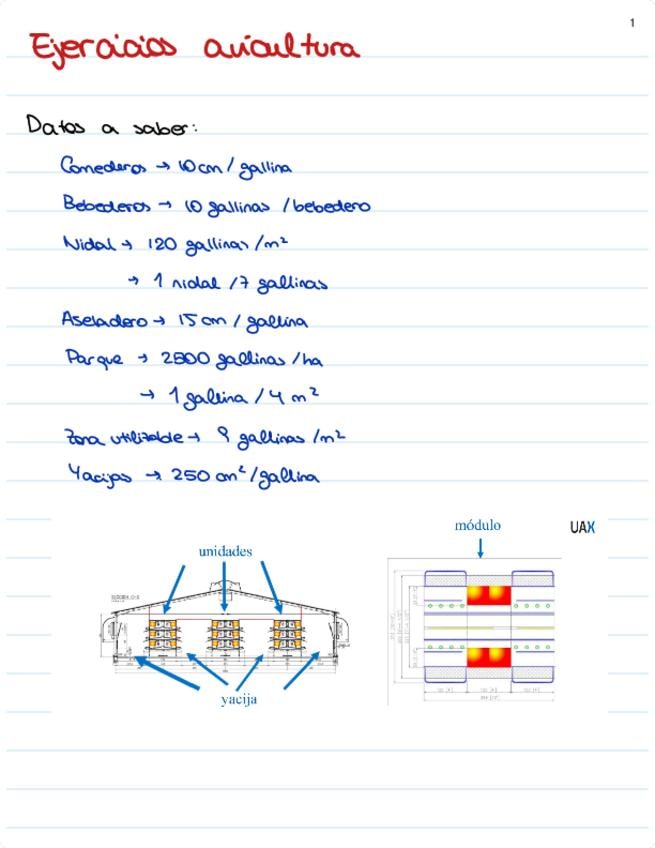 1
Ejercicios avicultura
Datos a saber:
Comederos → 10 cm / gallina
Bebederos → 10 gallinas / bebedero
Nidal → 120 gallinas / m²
→ 1 nidal / 7 gallinas
Aseladero → 15 cm / gallina
Parque → 2500 gallinas / ha
→ 1 gallina / 4 m²
Zona utilizable → 9 gallinas / m²
Yacijas → 250 cm² / gallina
módulo
UAX
unidades
yacija